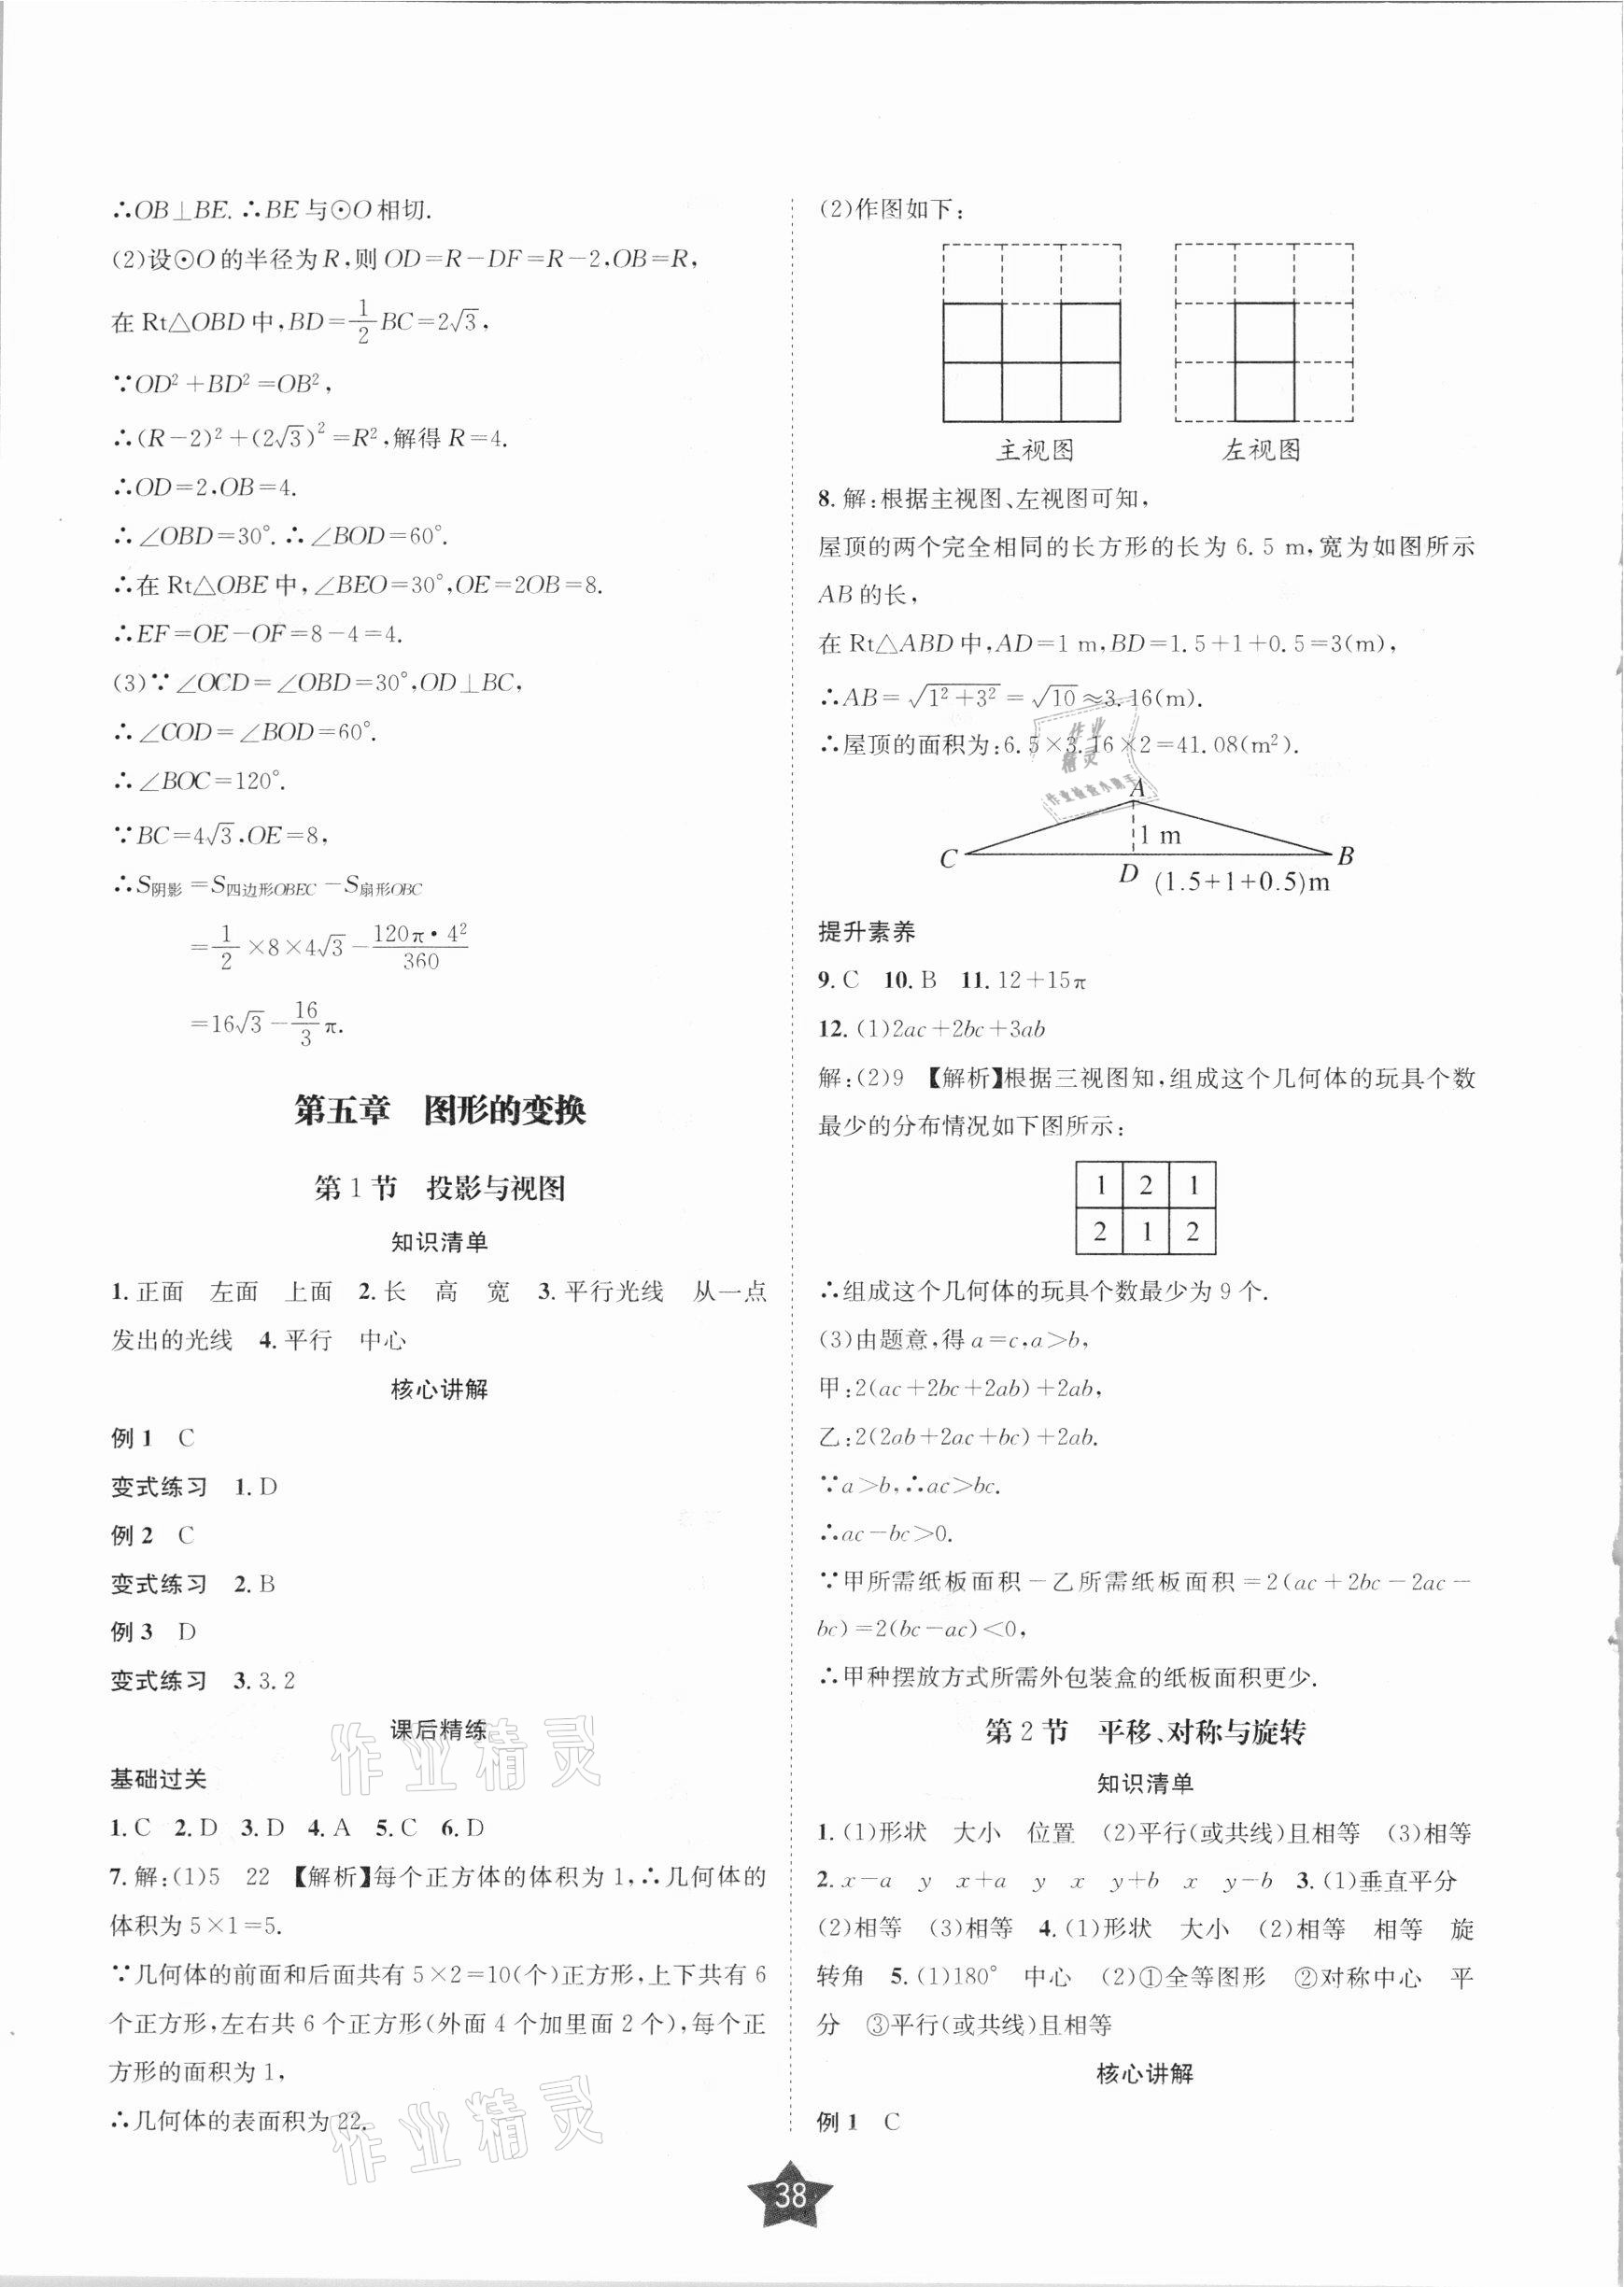 ∴OB⊥BE.∴BE与⊙O相切.
(2)设⊙O的半径为R,则OD=R-DF=R-2,OB=R,
在Rt△OBD中,BD=1/2BC=2√3,
∵OD²+BD²=OB²,
∴(R-2)²+(2√3)²=R²,解得R=4.
∴OD=2,OB=4.
∴∠OBD=30°.∴∠BOD=60°.
∴在Rt△OBE中,∠BEO=30°,OE=2OB=8.
∴EF=OE-OF=8-4=4.
(3)∵∠OCD=∠OBD=30°,OD⊥BC,
∴∠COD=∠BOD=60°.
∴∠BOC=120°.
∵BC=4√3,OE=8,
∴S阴影=S四边形OBEC-S扇形OBC
=1/2×8×4√3-120π·4²/360
=16√3-16/3π.
第五章 图形的变换
第1节 投影与视图
知识清单
1.正面 左面 上面 2.长 高 宽 3.平行光线 从一点
发出的光线 4.平行 中心
核心讲解
例1 C
变式练习 1.D
例2 C
变式练习 2.B
例3 D
变式练习 3.3.2
课后精练
基础过关
1.C 2.D 3.D 4.A 5.C 6.D
7.解:(1)5 22 【解析】每个正方体的体积为1,∴几何体的
体积为5×1=5.
∵几何体的前面和后面共有5×2=10(个)正方形,上下共有6
个正方形,左右共6个正方形(外面4个加里面2个),每个正
方形的面积为1,
∴几何体的表面积为22.
(2)作图如下:
主视图 左视图
8.解:根据主视图、左视图可知,
屋顶的两个完全相同的长方形的长为6.5 m,宽为如图所示
AB的长,
在Rt△ABD中,AD=1 m,BD=1.5+1+0.5=3(m),
∴AB=√(1²+3²)=√10≈3.16(m).
∴屋顶的面积为:6.5×3.16×2=41.08(m²).
A
1 m
C
B
D (1.5+1+0.5)m
提升素养
9.C 10.B 11.12+15π
12.(1)2ac+2bc+3ab
解:(2)9 【解析】根据三视图知,组成这个几何体的玩具个数
最少的分布情况如下图所示:
1 2 1
2 1 2
∴组成这个几何体的玩具个数最少为9个.
(3)由题意,得a=c,a>b,
甲:2(ac+2bc+2ab)+2ab,
乙:2(2ab+2ac+bc)+2ab.
∵a>b,∴ac>bc.
∴ac-bc>0.
∵甲所需纸板面积-乙所需纸板面积=2(ac+2bc-2ac-
bc)=2(bc-ac)<0,
∴甲种摆放方式所需外包装盒的纸板面积更少.
第2节 平移、对称与旋转
知识清单
1.(1)形状 大小 位置 (2)平行(或共线)且相等 (3)相等
2.x-a y x+a y x y+b x y-b 3.(1)垂直平分
(2)相等 (3)相等 4.(1)形状 大小 (2)相等 相等 旋
转角 5.(1)180° 中心 (2)①全等图形 ②对称中心 平
分 ③平行(或共线)且相等
核心讲解
例1 C
38
作业精灵
作业精灵
作业
精灵
作业检查小助手